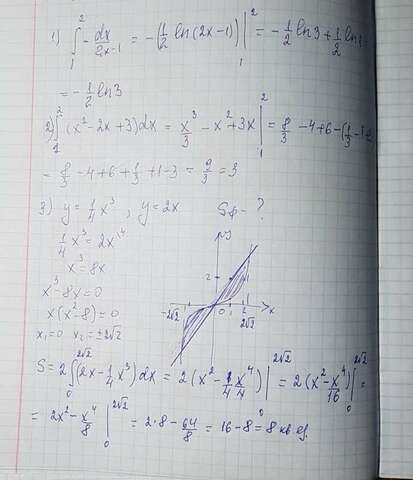 1) ∫₁² - dx/(2x-1) = -(1/2 ln(2x-1))|₁² = -1/2 ln3 + 1/2 ln1
= -1/2 ln3
2) ∫₁² (x²-2x+3)dx = x³/3 - x² + 3x |₁² = 8/3 - 4+6 - (1/3 - 1
= 8/3 - 4+6 + 1/3 + 1-3 = 9/3 = 3
3) y = 1/4 x³, y = 2x Sф - ?
1/4 x³ = 2x /4
x³ = 8x
x³ - 8x = 0
x(x²-8) = 0
x₁=0 x₂ = ±2√2
y
2
-2√2 0 1 2 x
2√2
S = 2∫₀^(2√2) (2x - 1/4 x³)dx = 2(x² - 1/4 x⁴/4)|₀^(2√2) = 2(x² - x⁴/16)|₀^(2√2) =
= 2x² - x⁴/8 |₀^(2√2) = 2·8 - 64/8 = 16-8 = 8 кв ед.